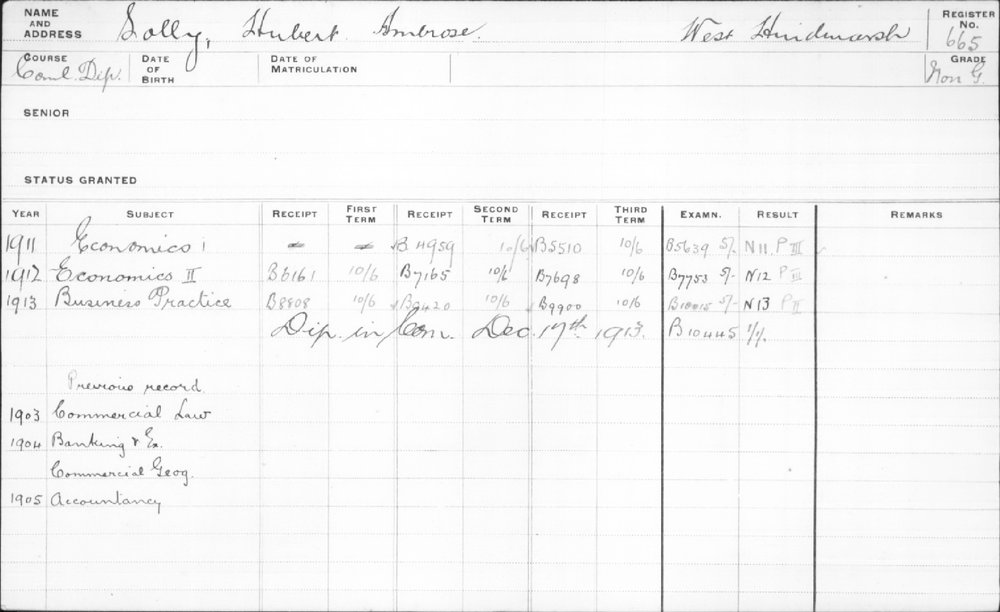 NAME AND ADDRESS Solly, Hubert Ambrose. West Hindmarsh REGISTER No. 665
COURSE Coml. Dip. DATE OF BIRTH DATE OF MATRICULATION GRADE Non G.
SENIOR
STATUS GRANTED
YEAR SUBJECT RECEIPT FIRST TERM RECEIPT SECOND TERM RECEIPT THIRD TERM EXAMN. RESULT REMARKS
1911 Economics I - - B4959 10/6 B5510 10/6 B5639 5/- N11. P III
1912 Economics II B6161 10/6 B7165 10/6 B7698 10/6 B7753 5/- N12 P III
1913 Business Practice B8808 10/6 B9420 10/6 B9900 10/6 B10015 5/- N13 P II
Dip. in Com. Dec. 17th 1913. B10445 1/1/.
Previous record.
1903 Commercial Law
1904 Banking & Ex.
Commercial Geog.
1905 Accountancy